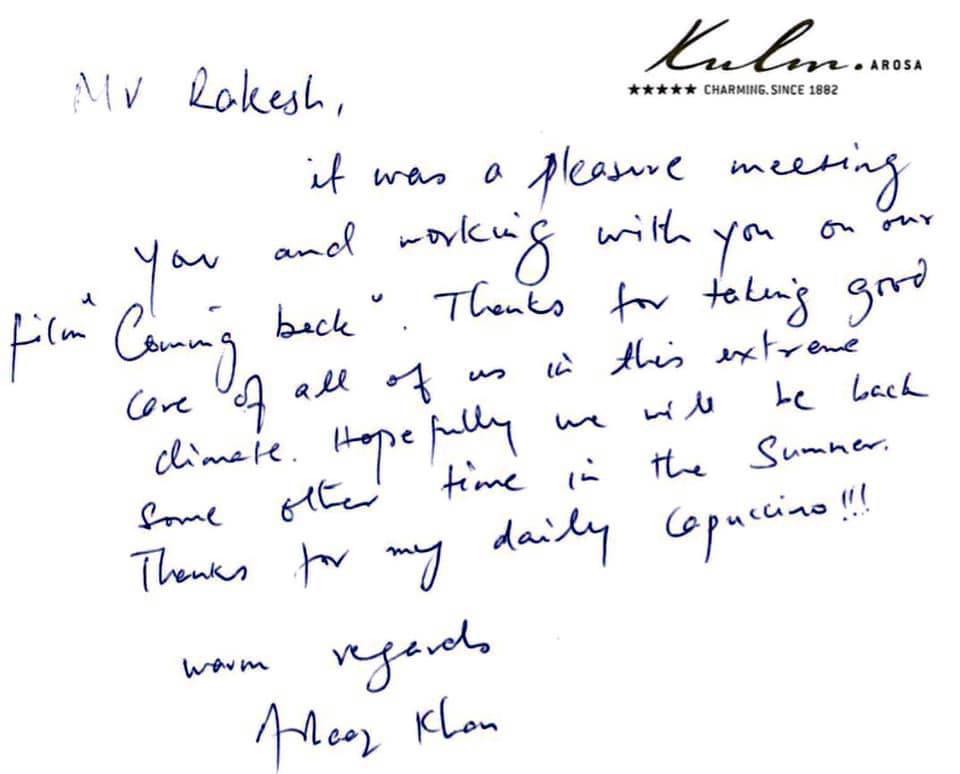 Kulm. AROSA
★★★★★ CHARMING. SINCE 1882
Mr Rakesh,
it was a pleasure meeting
you and working with you on our
film "Coming back". Thanks for taking good
care of all of us in this extreme
climate. Hopefully we will be back
some other time in the Summer.
Thanks for my daily Capuccino!!!
warm regards
Khan